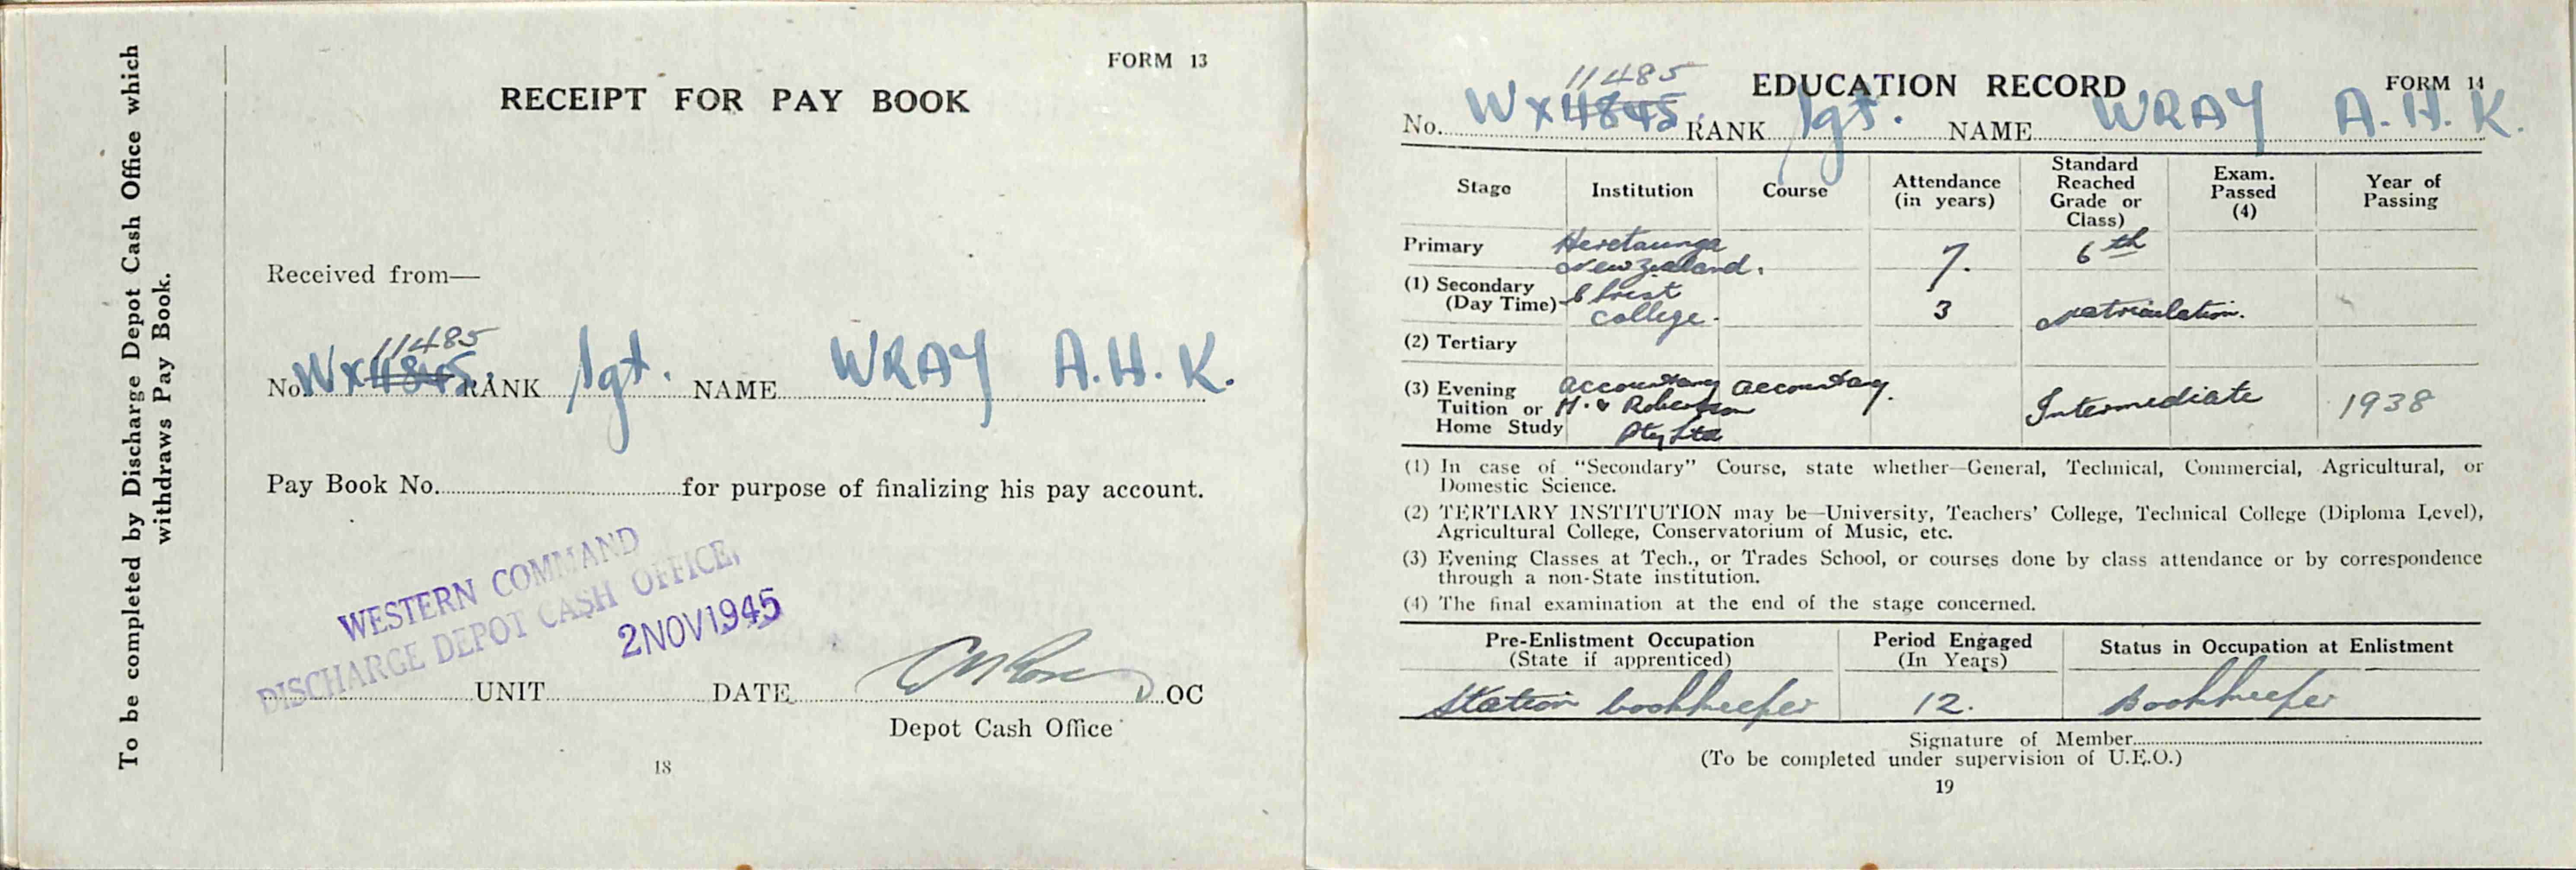 To be completed by Discharge Depot Cash Office which
withdraws Pay Book.
FORM 13
RECEIPT FOR PAY BOOK
Received from—
11485
No. WX 11845. RANK Sgt. NAME WRAY A.H.K.
Pay Book No. for purpose of finalizing his pay account.
WESTERN COMMAND
DISCHARGE DEPOT CASH OFFICE,
2 NOV 1945
UNIT DATE OC
Depot Cash Office
18
EDUCATION RECORD FORM 14
11485
No. WX 11845. RANK Sgt. NAME WRAY A.H.K.
Stage Institution Course Attendance (in years) Standard Reached Grade or Class) Exam. Passed (4) Year of Passing
Primary Heretaunga New Zealand. 7. 6th
(1) Secondary (Day Time) Christ College. 3 Matriculation.
(2) Tertiary
(3) Evening Tuition or Home Study Accountancy H. Robertson Pty Ltd Accountancy. Intermediate 1938
(1) In case of "Secondary" Course, state whether—General, Technical, Commercial, Agricultural, or
Domestic Science.
(2) TERTIARY INSTITUTION may be—University, Teachers' College, Technical College (Diploma Level),
Agricultural College, Conservatorium of Music, etc.
(3) Evening Classes at Tech., or Trades School, or courses done by class attendance or by correspondence
through a non-State institution.
(4) The final examination at the end of the stage concerned.
Pre-Enlistment Occupation (State if apprenticed) Period Engaged (In Years) Status in Occupation at Enlistment
Station bookkeeper 12. Bookkeeper
Signature of Member
(To be completed under supervision of U.E.O.)
19